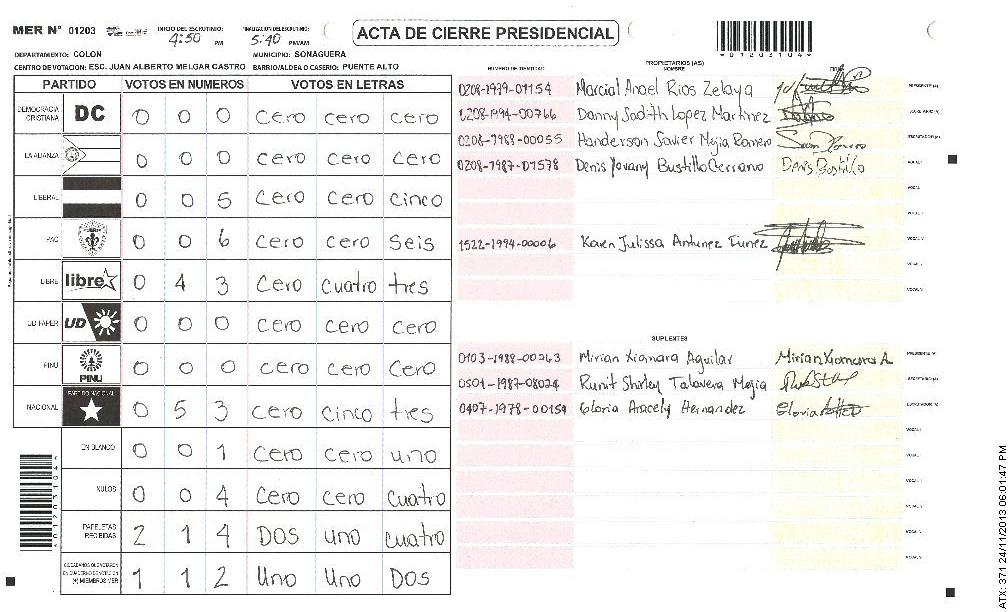 MER Nº 01203 INICIO DEL ESCRUTINIO: 4:50 PM FINALIZACION DEL ESCRUTINIO: 5:40 PM/AM ACTA DE CIERRE PRESIDENCIAL
DEPARTAMENTO: COLON MUNICIPIO: SONAGUERA
CENTRO DE VOTACION: ESC. JUAN ALBERTO MELGAR CASTRO BARRIO/ALDEA O CASERIO: PUENTE ALTO
PARTIDO VOTOS EN NUMEROS VOTOS EN LETRAS
DEMOCRACIA CRISTIANA DC 0 0 0 Cero cero cero
LA ALIANZA 0 0 0 Cero Cero Cero
LIBERAL 0 0 5 Cero Cero cinco
PAC 0 0 6 Cero cero Seis
LIBRE libre 0 4 3 Cero cuatro tres
UD FAPER UD 0 0 0 Cero cero Cero
PINU PINU 0 0 0 cero cero Cero
NACIONAL PARTIDO NACIONAL 0 5 3 cero cinco tres
EN BLANCO 0 0 1 cero cero uno
NULOS 0 0 4 Cero cero cuatro
PAPELETAS RECIBIDAS 2 1 4 DOS uno cuatro
(+) MIEMBROS MER 1 1 2 Uno Uno DOS
*01203104*
NUMERO DE IDENTIDAD PROPIETARIOS (AS) NOMBRE FIRMA
0208-1979-01154 Marcial Anoel Rios Zelaya PRESIDENTE (A)
0208-1994-00766 Danny Sadith Lopez Martinez SECRETARIO (A)
0208-1988-00055 Handerson Javier Mejia Romero ESCRUTADOR (A)
0208-1987-01578 Denis Yovany Bustillo Cerrano Denis Bustillo VOCAL I
VOCAL
VOCAL
1522-1994-00006 Karen Julissa Antunez Funez VOCAL
VOCAL
VOCAL
SUPLENTES
0103-1988-00263 Mirian Xiomara Aguilar Mirian Xiomara A. PRESIDENTE (A)
0501-1987-08024 Runit Shirley Talavera Mejia SECRETARIO (A)
0407-1978-00154 Gloria Aracely Hernandez Gloria ESCRUTADOR (A)
VOCAL
VOCAL
VOCAL
VOCAL
VOCAL
VOCAL
ATX: 371 24/11/2013 06:01:47 PM